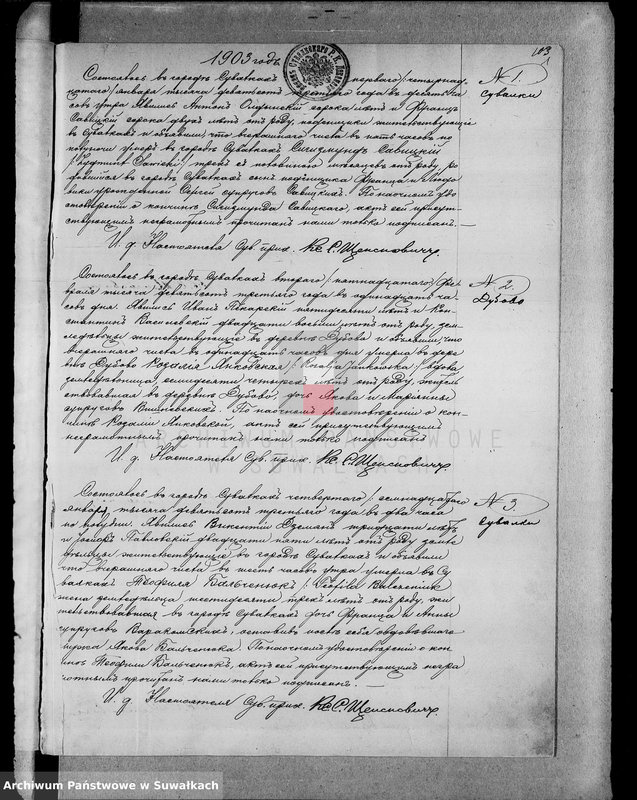 1903 годъ
Состоялось въ городѣ Сувалкахъ перваго/четырнад-
цатаго/января тысяча девятьсотъ третьяго года въ десять ча-
совъ утра. Явились Антонъ сорока лѣтъ и Францъ
Савицкій сорока двухъ лѣтъ отъ роду, поденщики жительствующіе
въ Сувалкахъ и объявили, что вчерашняго числа въ пять часовъ по
полудни умеръ въ городѣ Сувалкахъ Сигизмундъ Савицкій
трехъ съ половиною мѣсяцевъ отъ роду, ро-
дившійся въ городѣ Сувалкахъ сынъ поденщика Франца и
супруговъ Савицкихъ. По наочномъ удо-
стовѣреніи о кончинѣ Сигизмунда Савицкаго, актъ сей присут-
ствующимъ неграмотнымъ прочитанъ нами только подписанъ.—
И. д. Настоятеля Сув. прих. Кс. С. Щенсновичъ
№ 1.
Сувалки
Состоялось въ городѣ Сувалкахъ втораго/пятнадцатаго/
тысяча девятьсотъ третьяго года въ одинадцать ча-
совъ дня. Явились Иванъ Пекарскій пятидесяти лѣтъ и Кон-
стантинъ Василевскій двадцати восьми лѣтъ отъ роду, зем-
ледѣльцы жительствующіе въ деревнѣ Дубово и объявили, что
вчерашняго числа въ одинадцать часовъ дня умерла въ дерев-
нѣ Дубово Розалія Янковская/Rozalja Jankowska/вдова
земледѣлица, семидесяти четырехъ лѣтъ отъ роду, житель-
ствовавшая въ деревнѣ Дубово, дочь Якова и Маріанны
супруговъ Вишневскихъ. По наочномъ удостовѣреніи о кон-
чинѣ Розаліи Янковской, актъ сей присутствующимъ
неграмотнымъ прочитанъ нами только подписанъ
И. д. Настоятеля Сув. прих. Кс. С. Щенсновичъ.
№ 2.
Дубово
Состоялось въ городѣ Сувалкахъ четвертаго/семнадцатаго
января тысяча девятьсотъ третьяго года въ два часа
по полудни. Явились Викентій тридцати лѣтъ
и Павловскій двадцати пяти лѣтъ отъ роду, земле-
дѣльцы жительствующіе въ городѣ Сувалкахъ и объявили
что вчерашняго числа въ шесть часовъ утра умерла въ Су-
валкахъ Теофиля Бальченюкъ/Teofila
жена земледѣльца шестидесяти трехъ лѣтъ отъ роду, жи-
тельствовавшая въ городѣ Сувалкахъ дочь Франца и Анны
супруговъ оставивъ послѣ себя овдовѣвшаго
мужа Якова Бальченюка. По наочномъ удостовѣреніи о кон-
чинѣ Теофили Бальченюкъ, актъ сей присутствующимъ негра-
мотнымъ прочитанъ нами только подписанъ.—
И. д. Настоятеля Сув. прих. Кс. С. Щенсновичъ.
№ 3.
Сувалки
ARCHIWUM PAŃSTWOWE
W SUWAŁKACH
Archiwum Państwowe w Suwałkach